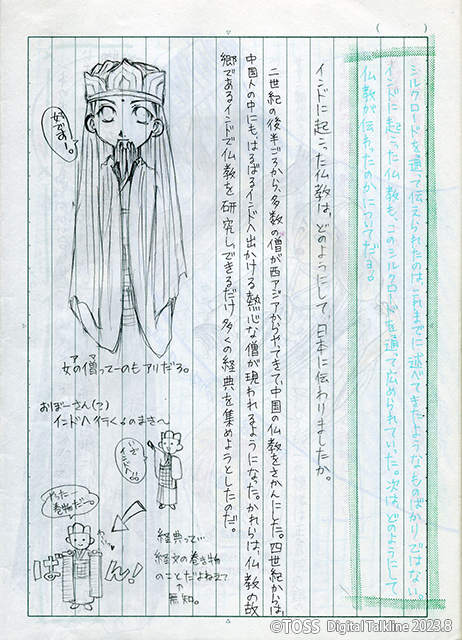 (　　)
シルクロードを通って伝えられたのは、これまでに述べてきたようなものばかりではない。
インドに起こった仏教も、このシルクロードを通って広められていった。次は、どのようにして
仏教が伝わったのかについてだよ。
インドに起こった仏教は、どのようにして、日本に伝わりましたか。
二世紀の後半ごろから、多数の僧が西アジアからやってきて、中国の仏教をさかんにした。四世紀からは、
中国人の中にも、はるばるインドへ出かける熱心な僧が現われるようになった。かれらは、仏教の故
郷であるインドで仏教を研究し、できるだけ多くの経典を集めようとしたのだ。
女ですー。
女の僧ってーのもアリだろ。
アマ
おぼーさん(?)
インドへ行くのまき〜
いざインドへ!!
やった巻物だー。
ばばん!
経典って
経文の巻き物
のことだよねえ?
↑
無知。
©TOSS Digital Talkline 2023.8